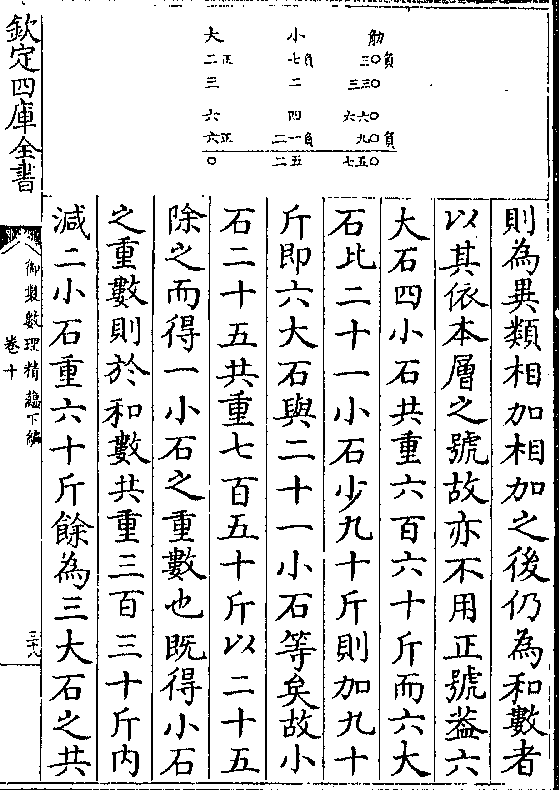 大 小 觔
二正 七負 三〇負
三 二 三三〇
六 四 六六〇
六正 二一負 九〇負
〇 二五 七五〇
則為異類相加相加之後仍為和數者
以其依本層之號故亦不用正號葢六
大石四小石共重六百六十斤而六大
石比二十一小石少九十斤則加九十
斤即六大石與二十一小石等矣故小
石二十五共重七百五十斤以二十五
除之而得一小石之重數也既得小石
之重數則於和數共重三百三十斤内
減二小石重六十斤餘為三大石之共
欽定四庫全書
御製數理精蘊下編
卷十